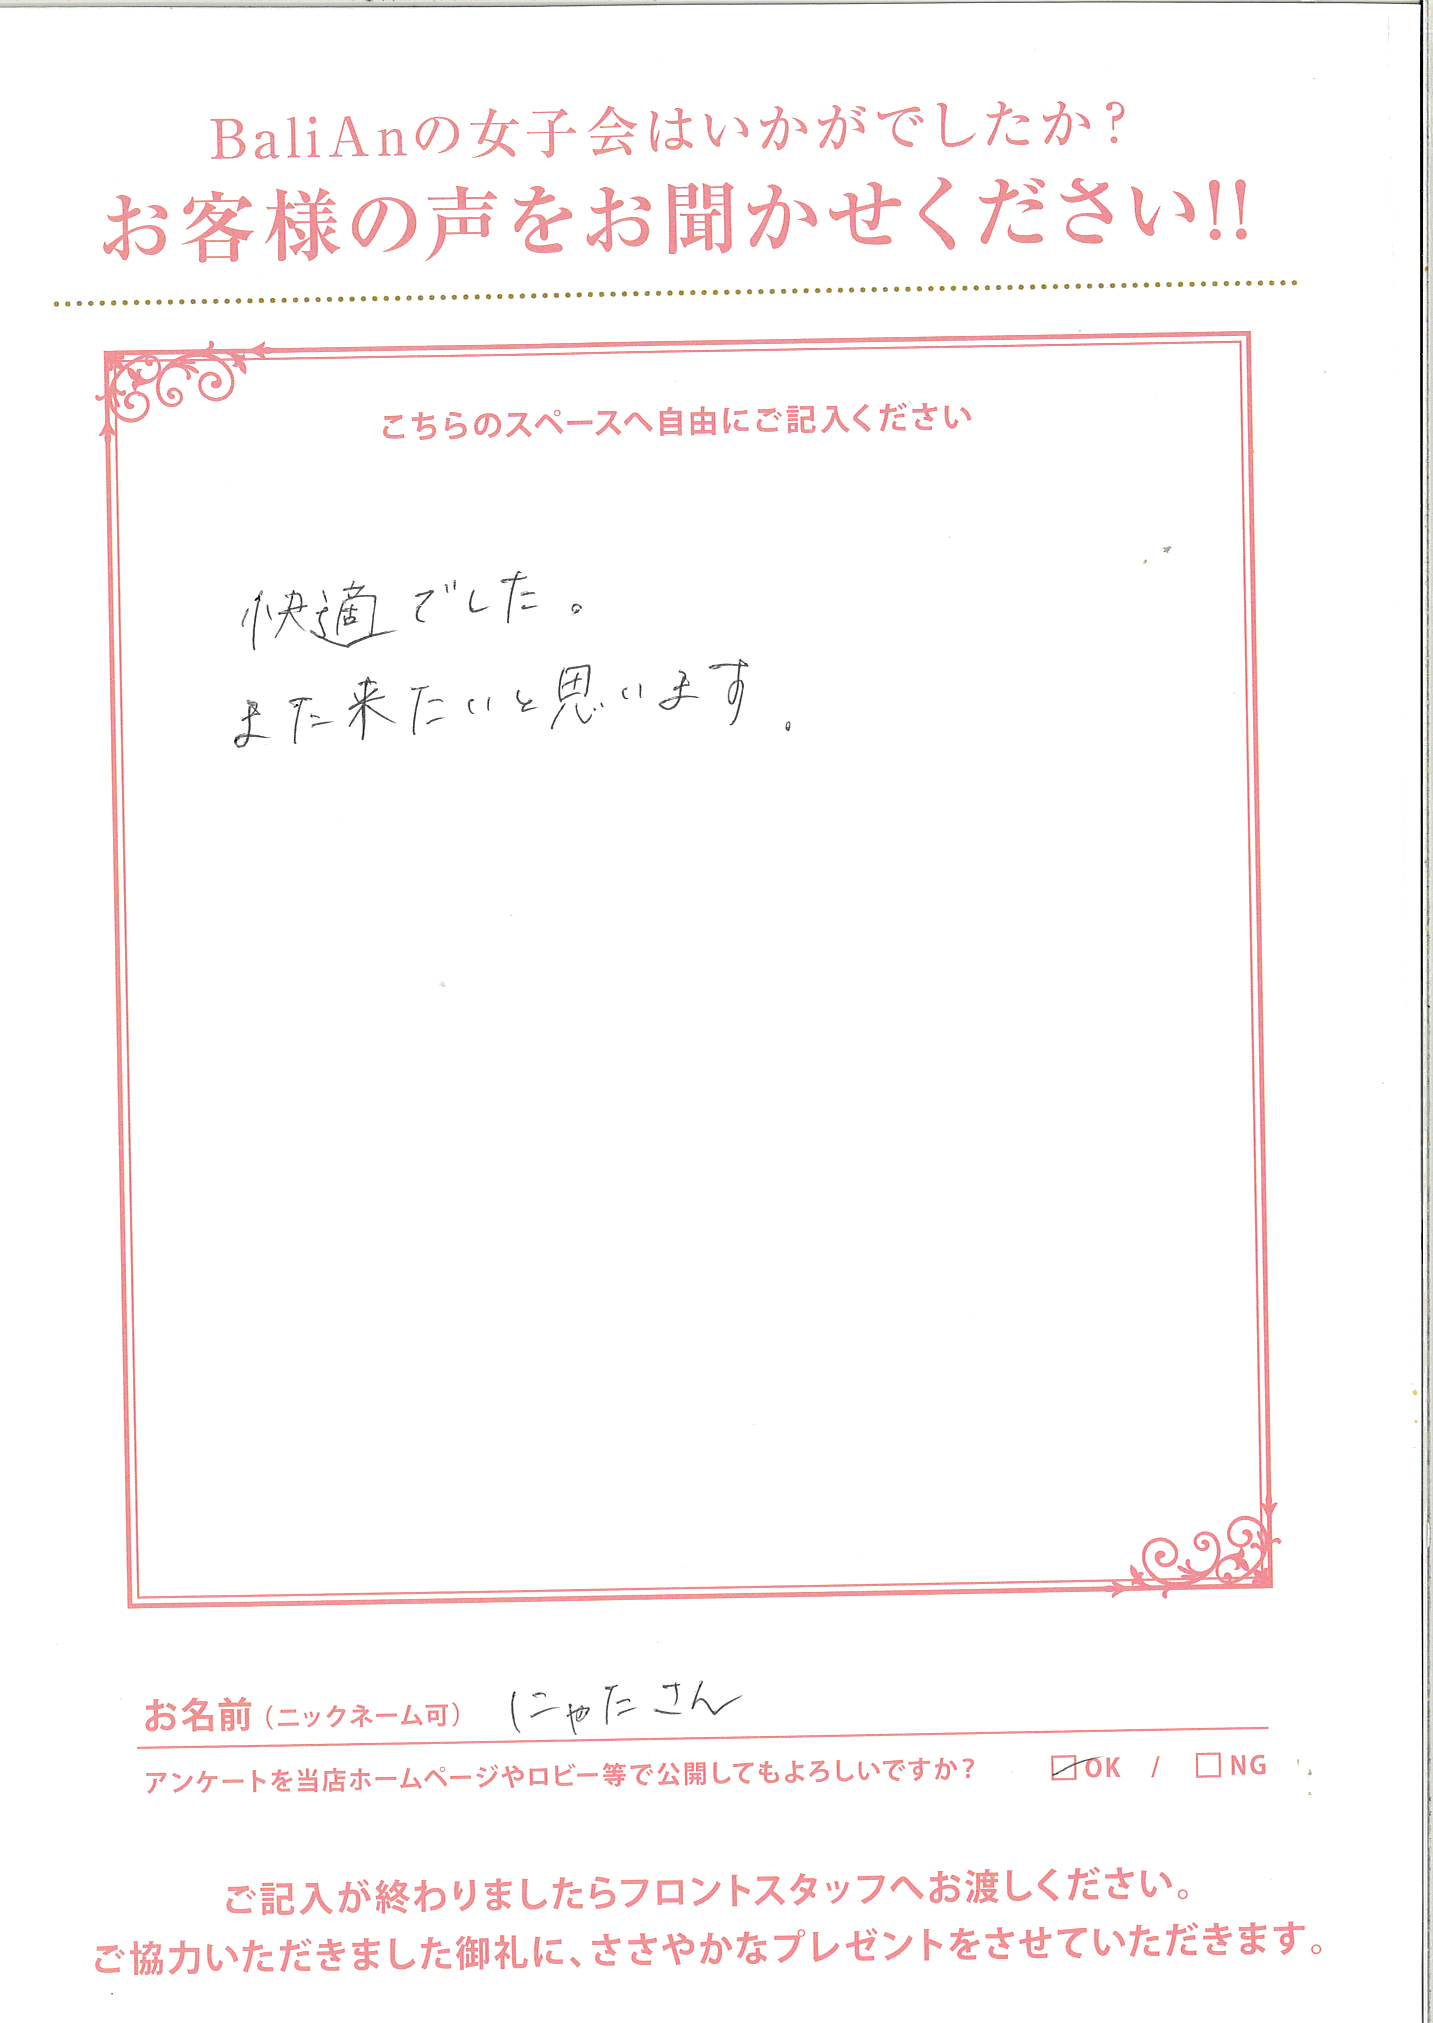 BaliAnの女子会はいかがでしたか？
お客様の声をお聞かせください!!
こちらのスペースへ自由にご記入ください
快適でした。
また来たいと思います。
お名前（ニックネーム可） にゃたさん
アンケートを当店ホームページやロビー等で公開してもよろしいですか？ ☑OK / □NG
ご記入が終わりましたらフロントスタッフへお渡しください。
ご協力いただきました御礼に、ささやかなプレゼントをさせていただきます。